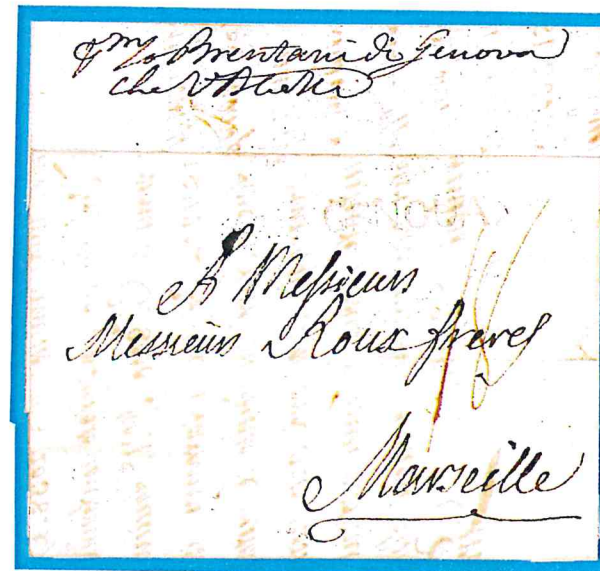 Brentani di Genova
che
GENOUA
A Messieurs
Messieurs Roux freres
Marseille